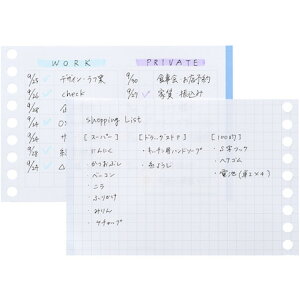 WORK
PRIVATE
9/25 ✓ デザイン・ラフ案
9/26 ✓ check
9/28
9/24
サ
9/28
9/29
9/30 食事会 お店予約
9/27 ✓ 家賃 振込み
Shopping List
[スーパー]
・にんにく
・かつおぶし
・ベーコン
・ニラ
・ふりかけ
・みりん
・ケチャップ
[ドラッグストア]
・キッチン用ハンドソープ
・糸ようじ
[100均]
・S字フック
・ヘアゴム
・電池(単2×4)